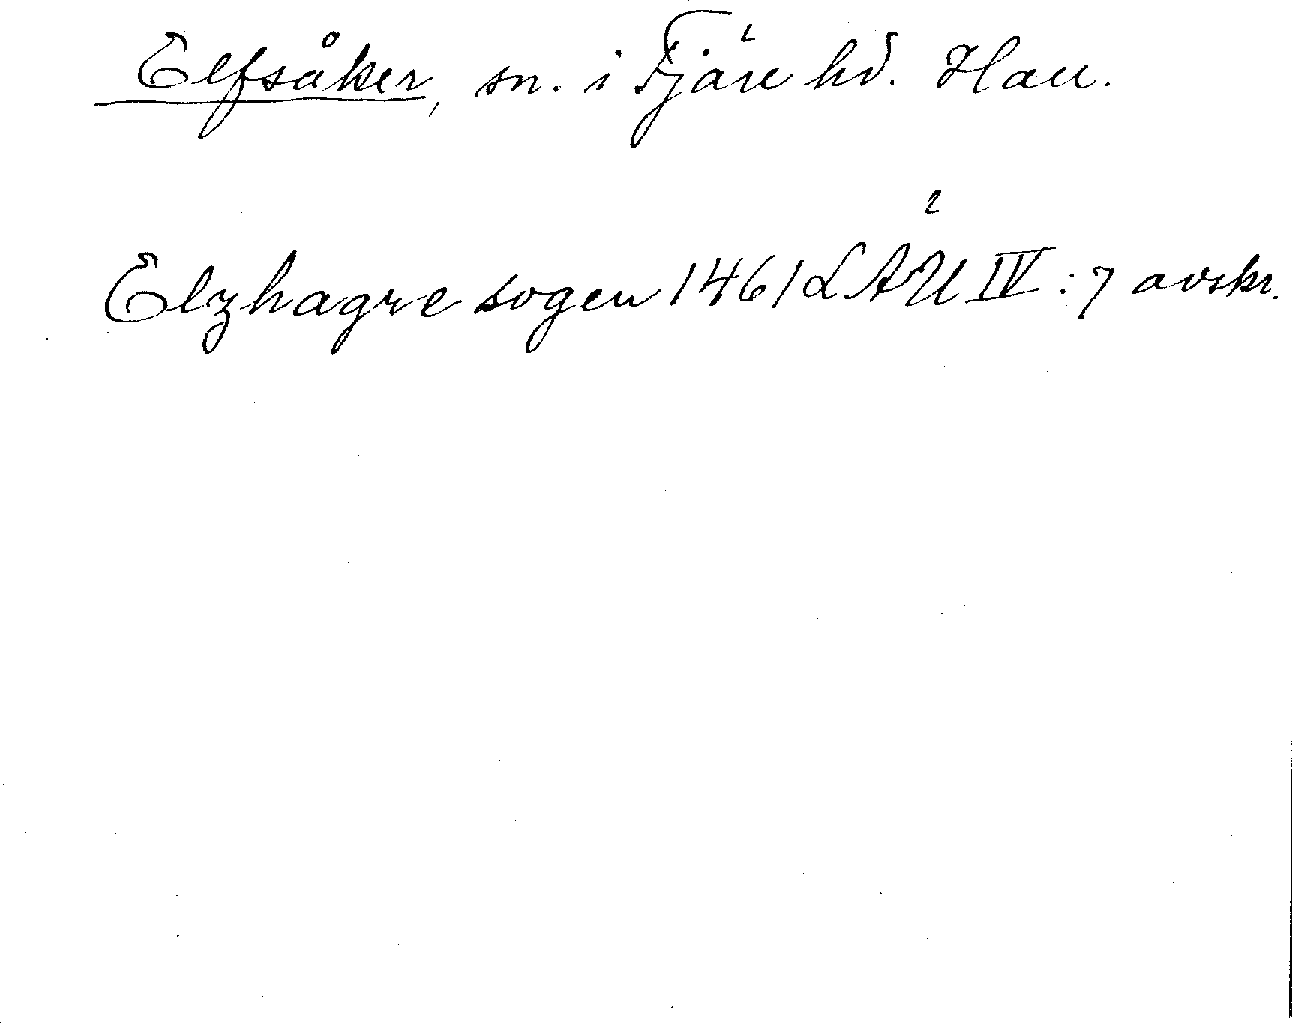 Elfsåker, sn. i Fjäre hd. Hall.
Elzhagre sogen 1461 LÄU IV:7 avskr.